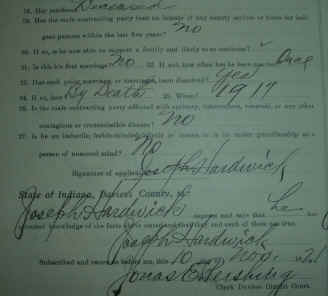 18. Has Deceased
19. Has the male contracting party been an inmate of any county asylum or home for indi-
gent persons within the last five years? No
20. If so, is he now able to support a family and likely to so continue?
21. Is this his first marriage? No 22. If not, how often has he been married? Once
23. Has such prior marriage, or marriages, been dissolved? Yes
24. If so, how? By Death 25. When? 1917
26. Is the male contracting party afflicted with epilepsy, tuberculosis, venereal, or any other
contagious or transmissible disease? No
27. Is he an imbecile, feeble-minded, or is he under guardianship as a
person of unsound mind? No
Signature of applicant Joseph Hardwick
State of Indiana, County, ss:
Joseph Hardwick deposes and says that he has
personal knowledge of the facts and each of them are true.
Joseph Hardwick
Subscribed and sworn to before me, this 10 day of Nov. 21
Jonas E.
Clerk Circuit Court.